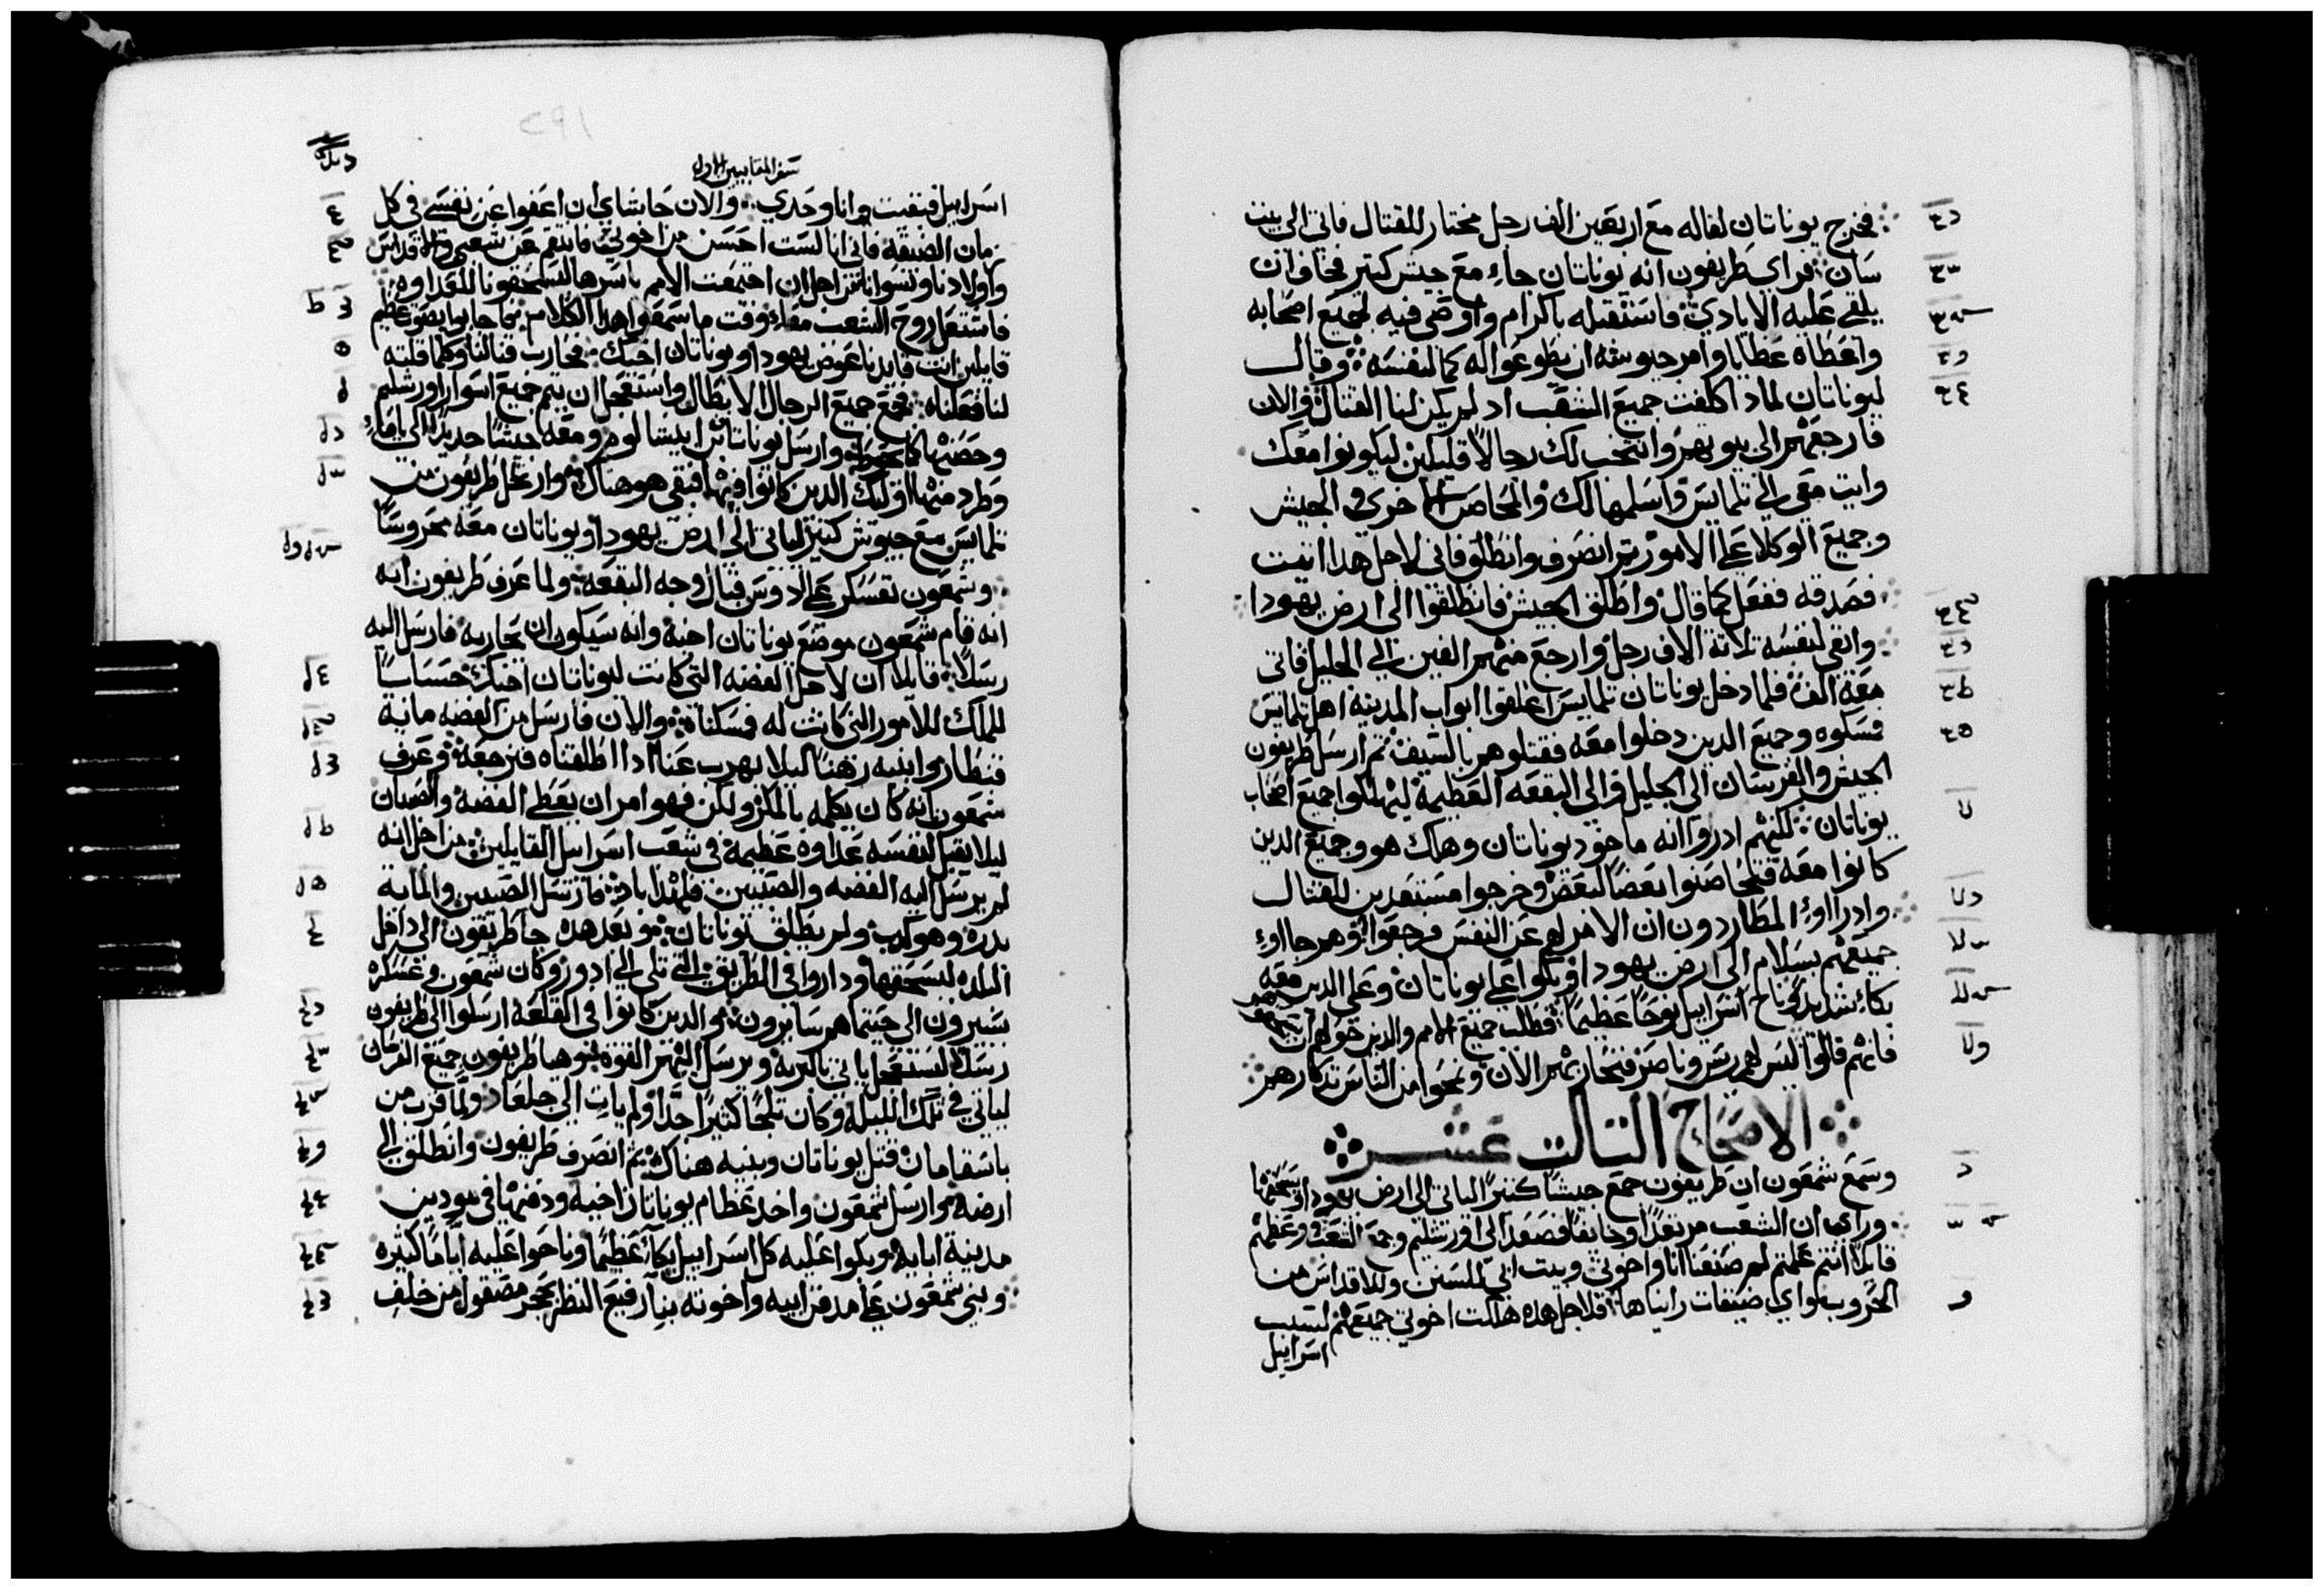 فخرج يوناتان لقاله مع اربعين الف رجل مختار للقتال فاتى الى بيت
سان فراى طريفون انه يوناتان جاء مع جيش كتير فخاف ان
يلقي عليه الايادي فاستقبله باكرام واوصى فيه لجميع اصحابه
واعطاه عطايا وامر جيوشه ان يطوعوا له كما لنفسه وقال
ليوناتان لمادا كلفت جميع الشعب اد لم يكن لنا القتال والان
فارجعهم الى بيوتهم وانتخب لك رجالا قليلين ليكونوا معك
وايت معي الى تلمايس واسلمها لك والمحاصن الاخرى والجيش
وجميع الوكلا على الامور تم انصرف وانطلق فاني لاجل هدا اتيت
فصدقه ففعل كما قال واطلق الجيش فانطلقوا الى ارض يهودا
وابقى لنفسه تلاتة الاف رجل وارجع منهم الفين الى الجليل فاتى
معه الف فلما دخل يوناتان تلمايس اغلقوا ابواب المدينة اهل تلمايس
فمسكوه وجميع الدين دخلوا معه فقتلوهم بالسيف تم ارسل طريفون
الجيش والفرسان الى الجليل والى البقعه العظيمة ليهلكوا جميع اصحاب
يوناتان لكنهم ادروا انه ماخود يوناتان وهلك هو وجميع الدين
كانوا معه فتحاضنوا بعضا لبعض وخرجوا مستعدين للقتال
وادراوا المطاردون ان الامر لهم عن النفس رجعوا وهم جااوا
جميعهم بسلام الى ارض يهودا وبكوا على يوناتان وعلى الدين معه
بكاء شديد وناح اسراييل نوحا عظيما فطلب جميع الامم والدين حولهم ان
فانهم قالوا ليس لهم ريس وناصر فنحاربهم الان ونمحوا من الناس تدكارهم
الاصحاح التالت عشر
وسمع شمعون ان طريفون جمع جيشا كتيرا لياتي الى ارض يهودا ويسحقها
وراى ان الشعب مرتعدا وخايفا فصعد الى اورشليم وجمع الشعب وعظهم
قايلا انتم علمتم لم صنعنا انا واخوتي وبيت ابي للسنن وللاقداس من
الحروب واي ضيقات رايناها فلاجل هده هلكت اخوتي جميعهم لسبب
اسراييل
سفر المقابيين الاول
اسراييل فبقيت وانا وحدي والان حاشاي ان اعفوا عن نفسي في كل
زمان الضيقة فاني انا لست احسن من اخوتي فانتقم عن شعبي والاقداس
واولادنا ونسواننا من اجل ان اجتمعت الامم باسرها لتسحقونا للعداوه
فاشتعل روح الشعب معا وقت ما سمعوا هدا الكلام فجاوبوا بصوت عظيم
قايلين انت قايدنا عوض يهودا ويوناتان اخيك فحارب قتالنا وكلما قلته
لنا فعلناه فجمع جميع الرجال الابطال واستعجل ان يتم جميع اسوار اورشليم
وحصنها كما تحوط وارسل يوناتان ابن ابيشالوم ومعه جيشا جديدا الى يافا
وطرد منها اوليك الدين كانوا فيها فبقي هو هناك وارتحل طريفون من
تلمايس مع جيوش كتيره لياتي الى ارض يهودا ويوناتان معه محروسا
وشمعون تعسكر على ادوس قبال وجه البقعة ولما عرف طريفون انه
انه قام شمعون موضع يوناتان اخيه وانه سيكون ان يحاربه فارسل اليه
رسلا قايلا ان لاجل الفضه التي كانت ليوناتان اخيك حسابا
للملك للامور التي كانت له فمسكناه والان فارسل من الفضه ماية
قنطار وابنيه رهنا ليلا يهرب عنا ادا اطلقناه فنرجعه وعرف
شمعون انه كان يكلمه بالمكر ولكن فهو امر ان يعطي الفضه والصبيان
ليلا يقبل لنفسه عداوه عظيمة في شعب اسراييل القايلين من اجل انه
لم يرسل اليه الفضه والصبيين فلهدا باد فارسل الصبيين والماية
بدره وهو كدب ولم يطلق يوناتان وبعد هده جا طريفون الى داخل
البلده ليسحقها وداروا في الطريق التي تلي الى ادور وكان شمعون وعسكره
يسيرون الى حيتما هم سايرون والدين كانوا في القلعة ارسلوا الى طريفون
رسلا ليستعجل ياتي بالبريه ويرسل اليهم القوه فهيا طريفون جميع الفرسان
لياتي في تلك الليله وكان تلجا كتيرا جدا ولم يات الى جلعاد ولما قرب من
باسقامان قتل يوناتان وبنيه هناك تم انصرف طريفون وانطلق الى
ارضه وارسل شمعون واخد عظام يوناتان اخيه ودفنها في مودين
مدينة ابايه وبكوا عليه كل اسراييل بكاء عظيما وناحوا عليه اياما كتيره
وبنى شمعون على مدفن ابيه واخوته بناء رفيع النظر بحجر مصقول من خلف